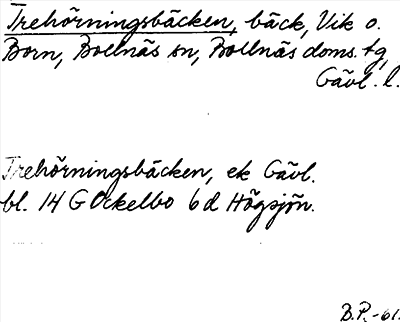 Trehörningsbäcken, bäck, Vik o.
Born, Bollnäs sn, Bollnäs doms. tg,
Gävl. l.
Trehörningsbäcken, ek Gävl.
bl. 14 G Ockelbo 6 d Högsjön.
B.P.-61.